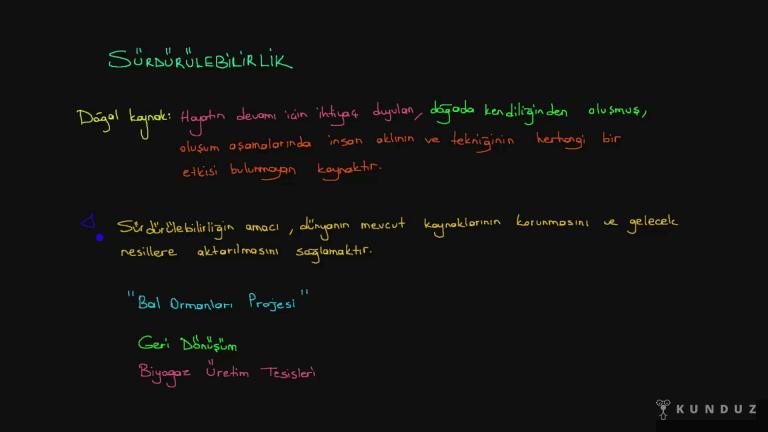 SÜRDÜRÜLEBİLİRLİK
Doğal kaynak: Hayatın devamı için ihtiyaç duyulan, doğada kendiliğinden oluşmuş,
oluşum aşamalarında insan aklının ve tekniğinin herhangi bir
etkisi bulunmayan kaynaktır.
Sürdürülebilirliğin amacı, dünyanın mevcut kaynaklarının korunmasını ve gelecek
nesillere aktarılmasını sağlamaktır.
"Bal Ormanları Projesi"
Geri Dönüşüm
Biyogaz Üretim Tesisleri
KUNDUZ